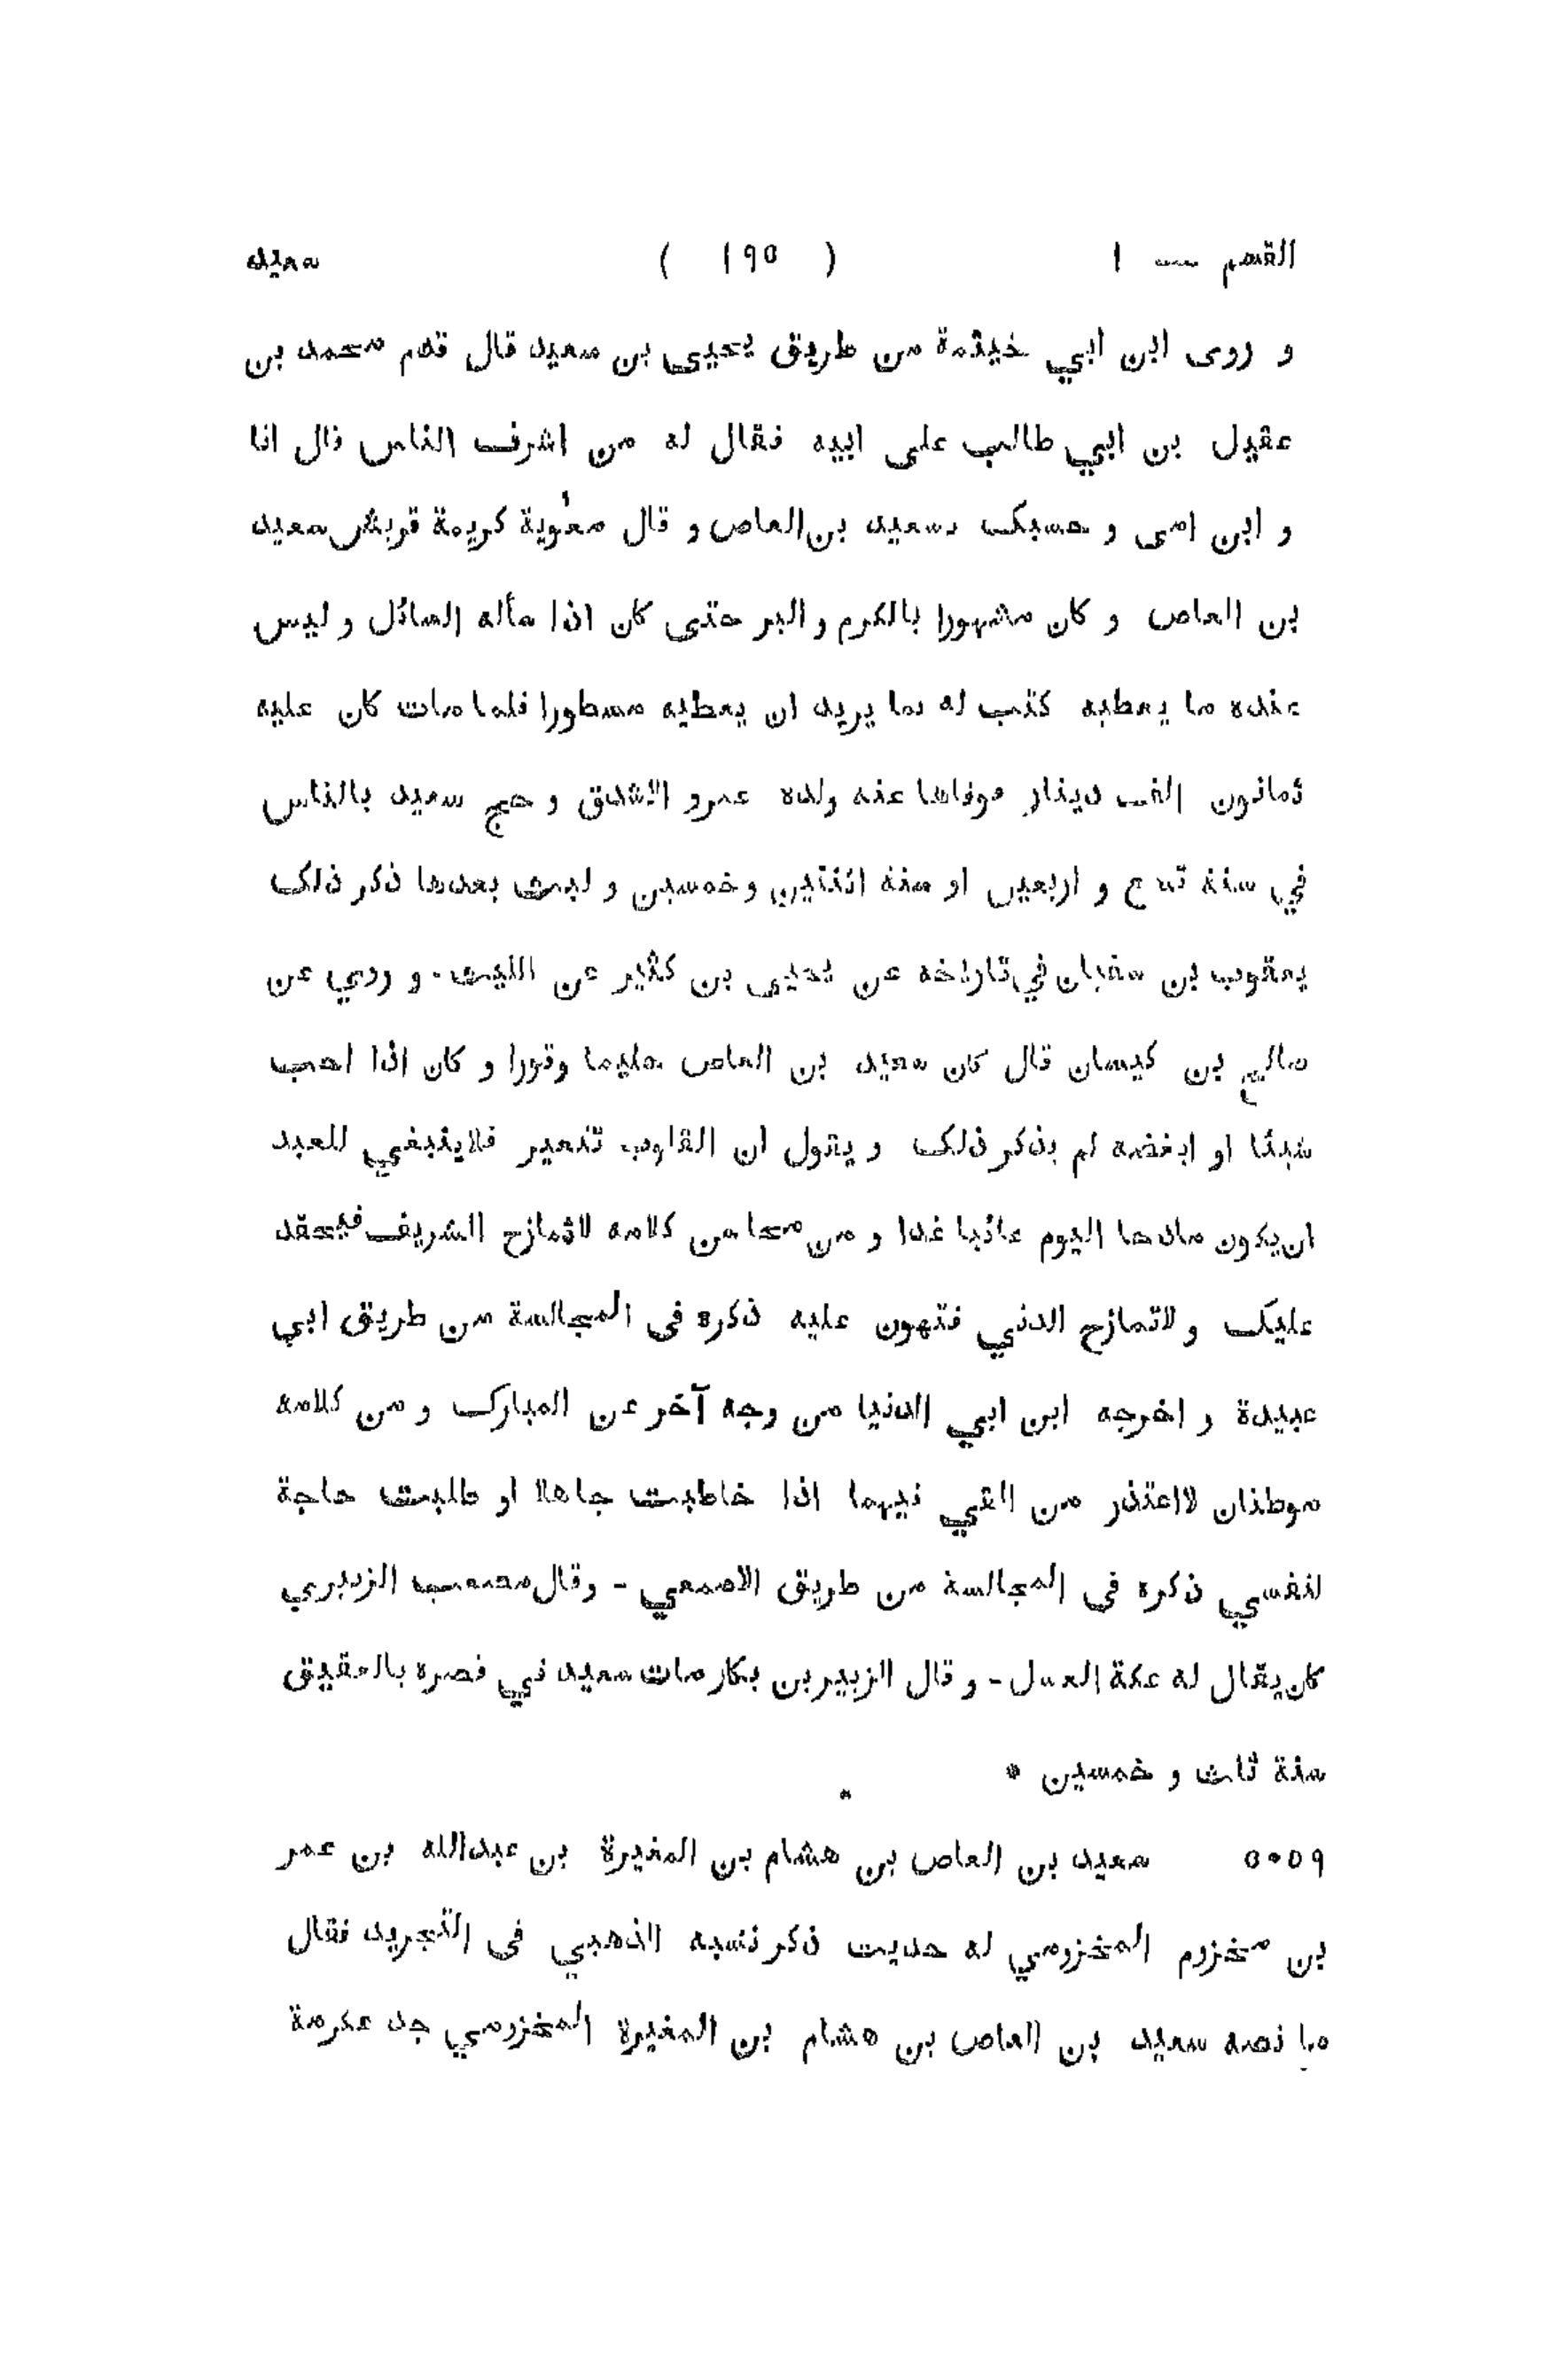 القسم — ١ ( ١٩٥ ) سعيد
و روى ابن ابي خيثمة من طريق يحيى بن سعيد قال قدم محمد بن
عقيل بن ابي طالب على ابيه فقال له من اشرف الناس قال انا
و ابن امى و حسبك بسعيد بن العاص و قال معٰوية كريمة قريش سعيد
بن العاص و كان مشهورا بالكرم و البر حتى كان اذا سأله السائل و ليس
عنده ما يعطيه كتب له بما يريد ان يعطيه مسطورا فلما مات كان عليه
ثمانون الف دينار فوفاها عنه ولده عمرو الاشدق و حج سعيد بالناس
في سنة تسع و اربعين او سنة اثنتين و خمسين و لبث بعدها ذكر ذلك
يعقوب بن سفيان في تاريخه عن يحيى بن كثير عن الليث - و روي عن
صالح بن كيسان قال كان سعيد بن العاص حليما وقورا و كان اذا احب
شيئا او ابغضه لم يذكر ذلك و يقول ان القلوب تتغير فلاينبغي للعبد
ان يكون مادحا اليوم عائبا غدا و من محاسن كلامه لاتمازح الشريف فيحقد
عليك و لاتمازح الدني فتهون عليه ذكره فى المجالسة من طريق ابي
عبيدة و اخرجه ابن ابي الدنيا من وجه آخر عن المبارك و من كلامه
موطنان لااعتذر من العي فيهما اذا خاطبت جاهلا او طلبت حاجة
لنفسي ذكره فى المجالسة من طريق الاصمعي - و قال مصعب الزبيري
كان يقال له عكة العسل - و قال الزبير بن بكار مات سعيد في قصره بالعقيق
سنة ثلث و خمسين *
٥٠٥٩ سعيد بن العاص بن هشام بن المغيرة بن عبدالله بن عمر
بن مخزوم المخزومي له حديث ذكر نسبه الذهبي فى التجريد فقال
ما نصه سعيد بن العاص بن هشام بن المغيرة المخزومي جد عكرمة